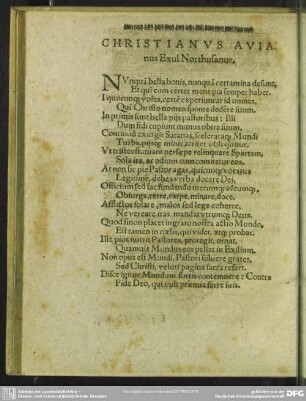 CHRISTIANVS AVIA
nus Exul Northusanus.
NVnquã bella bonis, nunquã certamina desunt,
Et qui cum certet mens pia semper habet.
I quocunq; voles, certè experiuntur id omnes,
Qui Christo nomen sponte dedêre suum.
In primis sunt bella pijs pastoribus: Illi
Dum fidi cupiunt munus obire suum.
Concinuò exurgit Satanas, scelerataq; Mundi
Turba,
Vt tristes statuant persæpe relinquere Spartam,
Sola ira, ac odium cum comitetur eos.
At non sic pie Pastor agas, quicunq; vocatus
Legitimè, debes verba docere Dei.
Officium sed fac fundendo oleumq;
Obiurga, terre, carpe, minare, doce,
Afflictos solare, malos sed lege coherce,
Ne vereare iras, mandat vtrunq; Deus.
Quod si non placet ingrato nostra actio Mundo,
Est tamen in cœlis, qui videt, atq; probat.
Ille pios nutrit Pastores, protegit, ornat,
Quantuis Mundus eos pellat in Exilium.
Non opus est Mundi, Pastori soluere grates,
Sed Christi, veluti pagina sacra refert.
Disce igitur Mundum fortis contemnere: Contra
Fide Deo, qui vult præmia ferre suis.